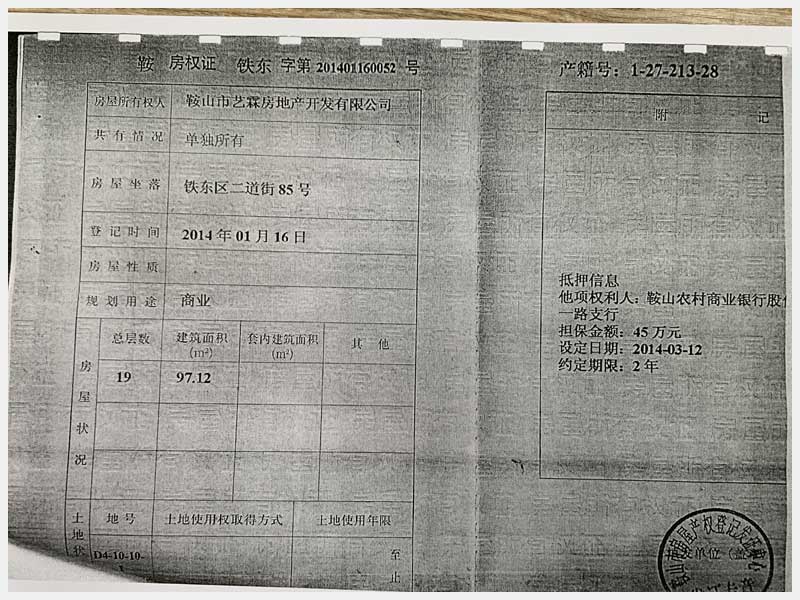 鞍 房权证 铁东 字第 201401160052 号
产籍号：1-27-213-28
房屋所有权人 鞍山市艺霖房地产开发有限公司
共有情况 单独所有
房屋坐落 铁东区二道街85号
登记时间 2014年01月16日
房屋性质
规划用途 商业
房屋状况
总层数 建筑面积(m²) 套内建筑面积(m²) 其他
19 97.12
土地状
地号 土地使用权取得方式 土地使用年限
D4-10-10-
1
至
止
附 记
抵押信息
他项权利人：鞍山农村商业银行股
一路支行
担保金额：45万元
设定日期：2014-03-12
约定期限：2年
单位（盖